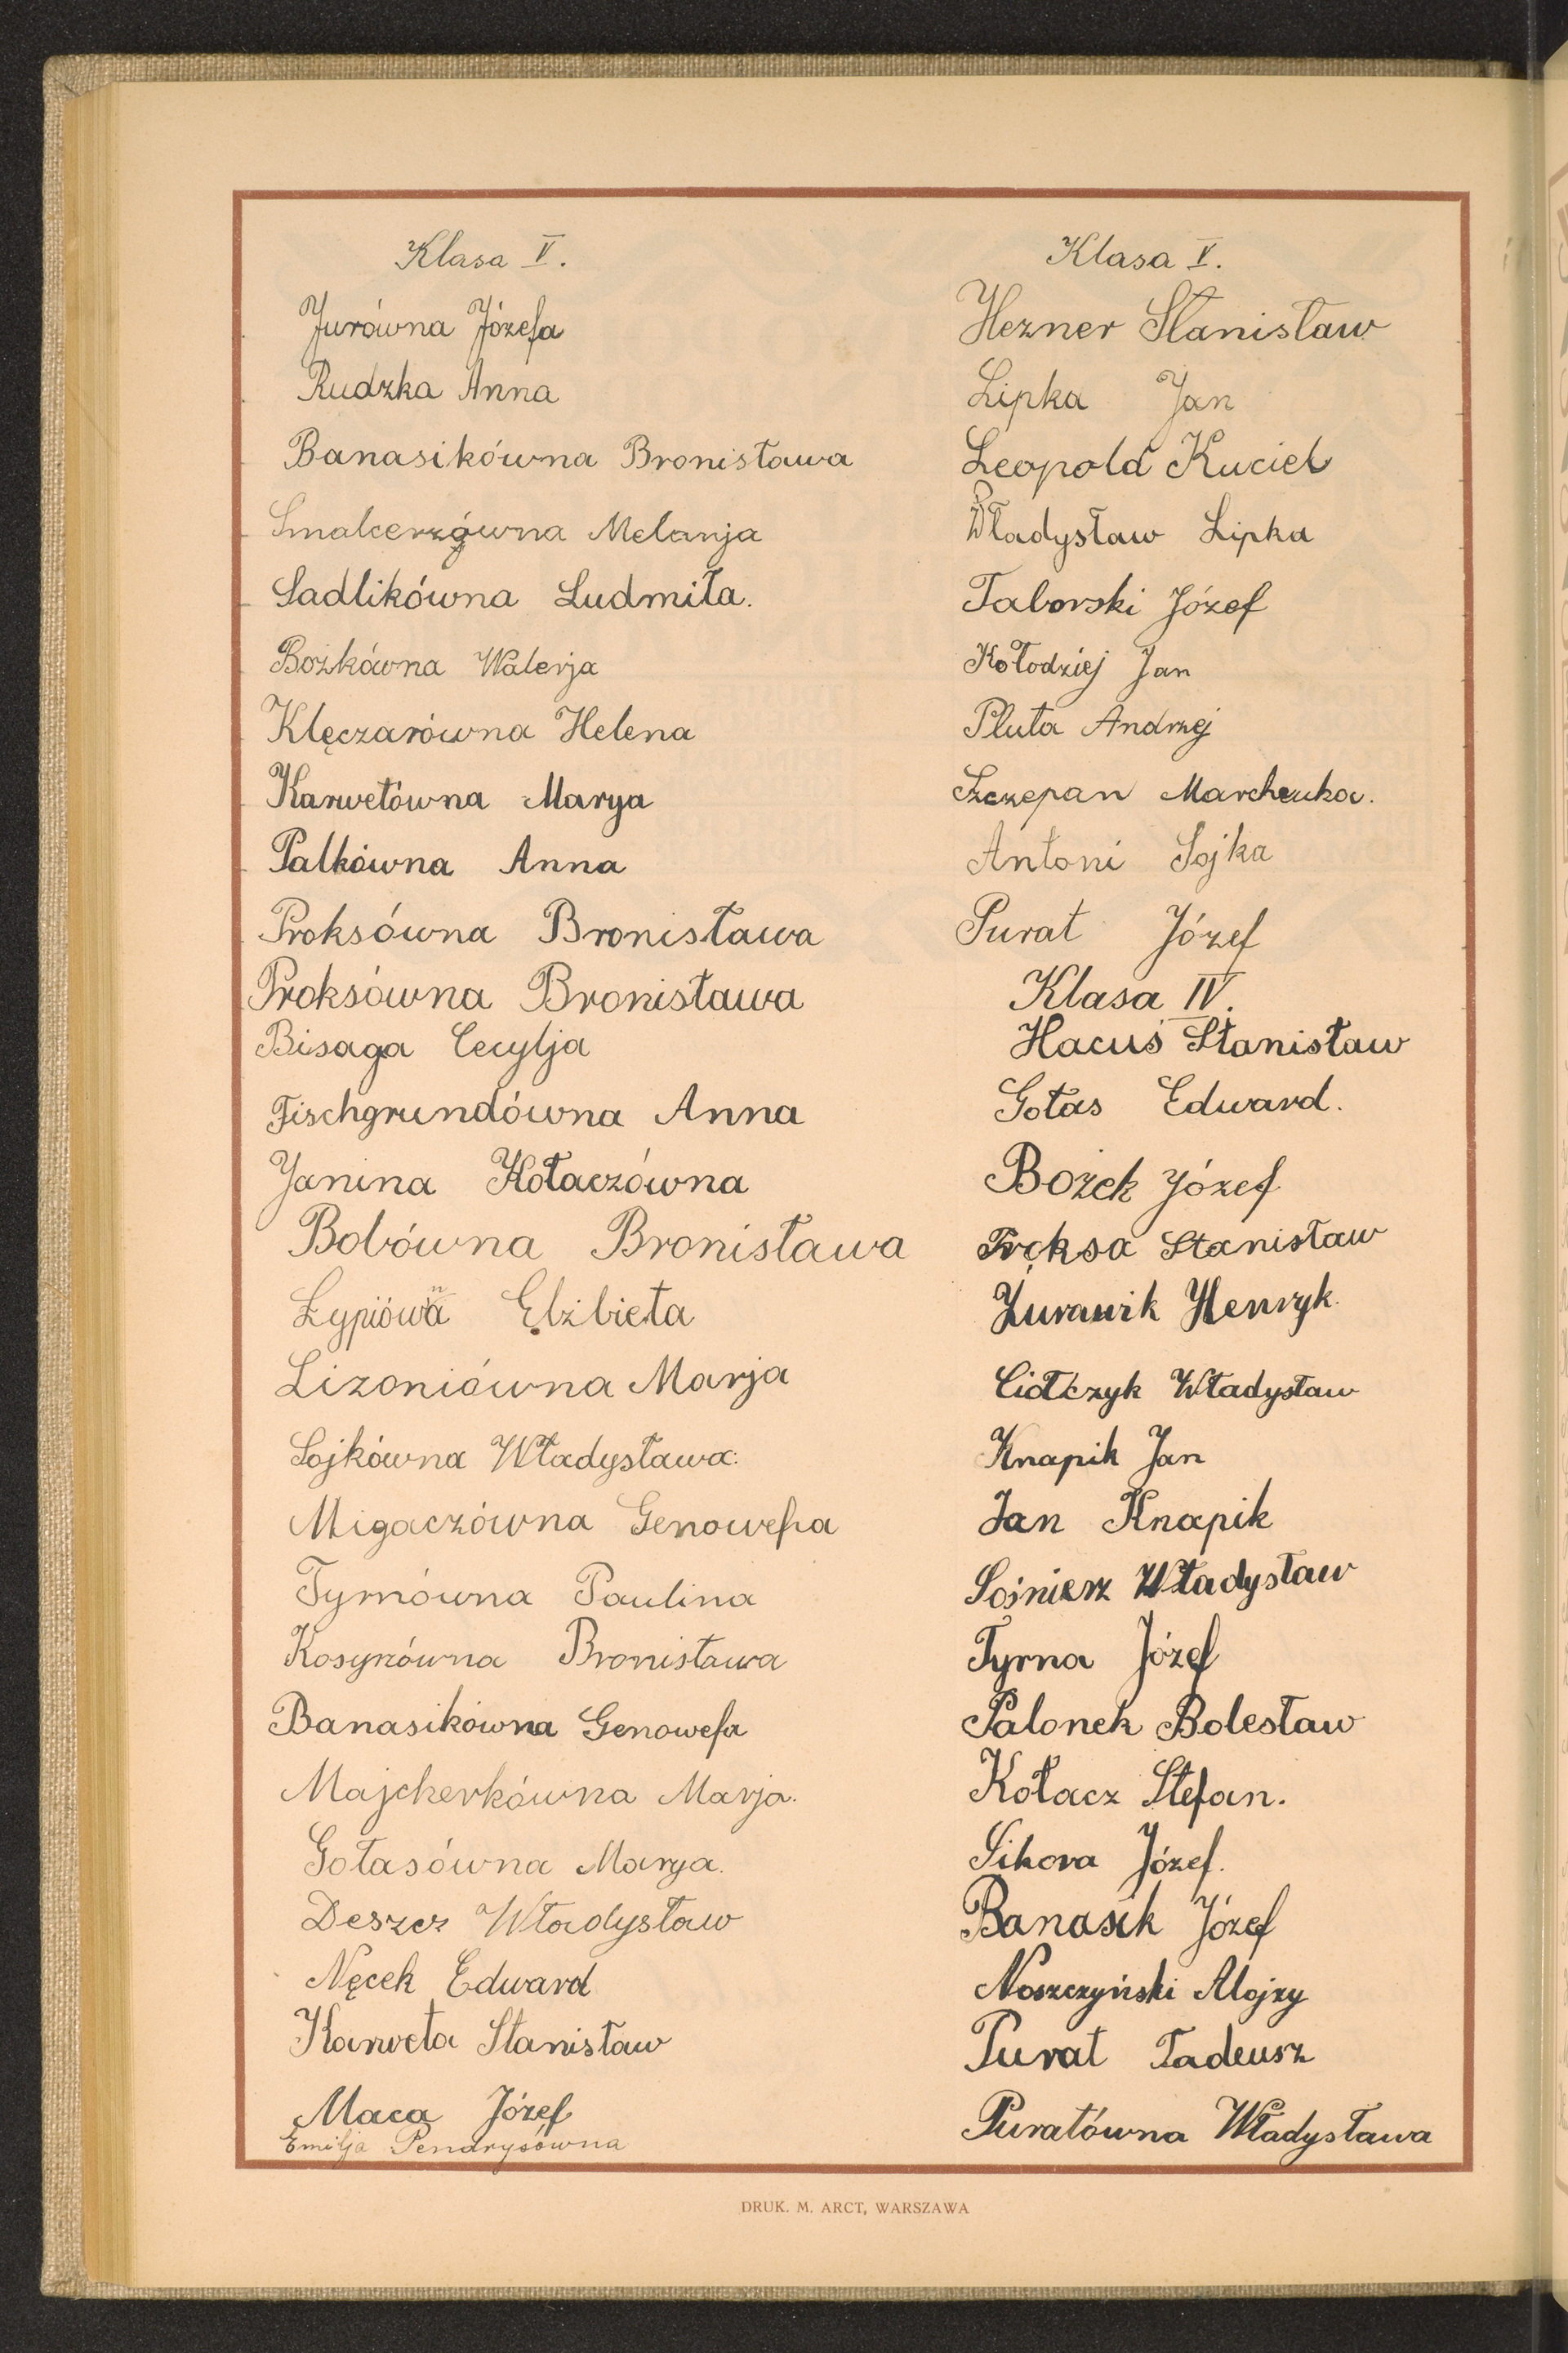 Klasa V.
Jurówna Józefa
Rudzka Anna
Banasikówna Bronisława
Smalcerzówna Melanja
Sadlikówna Ludmiła.
Bożkówna Walerja
Klęczarówna Helena
Karwetówna Marya
Palkówna Anna
Proksówna Bronisława
Proksówna Bronisława
Bisaga Cecylja
Fischgrundówna Anna
Janina Kołaczówna
Bobówna Bronisława
Łypiówna Elżbieta
Lizoniówna Marja
Sojkówna Władysława.
Migaczówna Genowefa
Tyrnówna Paulina
Kosynówna Bronisława
Banasikówna Genowefa
Majcherkówna Marja.
Gołasówna Marya.
Deszcz Władysław
Nęcek Edward
Karweta Stanisław
Maca Józef
Emilja Pendrysówna
Klasa V.
Hezner Stanisław
Lipka Jan
Leopold Kuciel
Władysław Lipka
Taborski Józef
Kołodziej Jan
Pluta Andrzej
Szczepan Marchewka.
Antoni Sojka
Purat Józef
Klasa IV.
Hacuś Stanisław
Gołas Edward.
Bożek Józef
Proksa Stanisław
Żurawik Henryk.
Ciołczyk Władysław
Knapik Jan
Jan Knapik
Sośnierz Władysław
Tyrna Józef
Palonek Bolesław
Kołacz Stefan.
Sikora Józef.
Banasik Józef
Noszczyński Alojzy
Purat Tadeusz
Puratówna Władysława
DRUK. M. ARCT, WARSZAWA